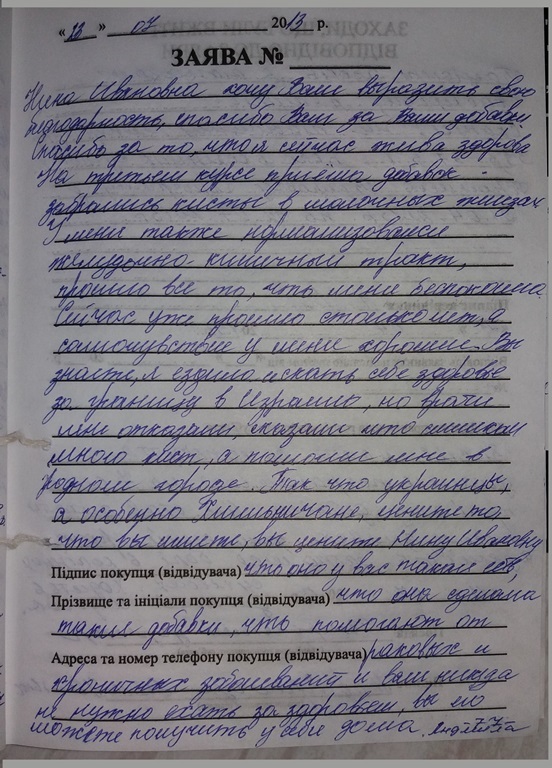 "12" 07 2013 р.
ЗАЯВА №
Нина Ивановна хочу Вам выразить свою
благодарность, спасибо Вам за Ваши добавки
Спасибо за то, что я сейчас жива здорова
На третьем курсе приёма добавок -
забрались кисты в молочных железах
У меня также нормализовался
желудочно кишичный тракт,
прошло все то, что меня беспокоило.
Сейчас уже прошло столько лет, а
самочувствие у меня хорошее. Вы
знаете, я ездила искать себе здоровье
за границу в Израиль, но врачи
мне отказали, сказали что слишком
много кист, а помогли мне в
родном городе. Так что украинцы,
а особенно Хмельничане, цените то
что вы имеете, вы цените Нину Ивановну
Підпис покупця (відвідувача) что она у вас такая есть,
Прізвище та ініціали покупця (відвідувача) что она сделала
такие добавки, что помогают от
Адреса та номер телефону покупця (відвідувача) раковых и
хроничных заболеваний и вам никуда
не нужно ехать за здоровьем, вы его
можете получить у себя дома.